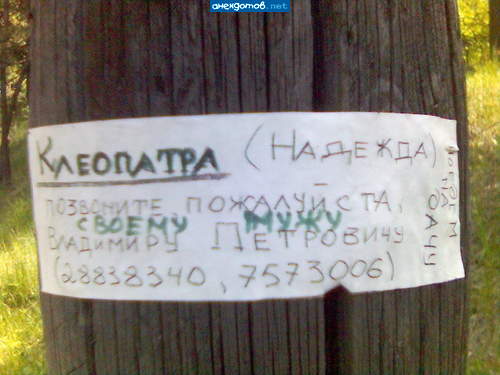 анекдотов.net
КЛЕОПАТРА (НАДЕЖДА)
ПОЗВОНИТЕ, ПОЖАЛУЙСТА,
СВОЕМУ МУЖУ
ВЛАДИМИРУ ПЕТРОВИЧУ
(28838340, 7573006)
ДАЧУ